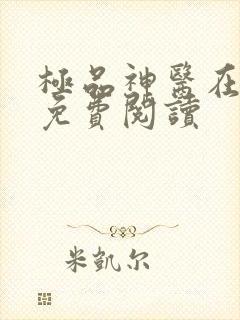 極品神醫在
免費閱讀
米凱尔